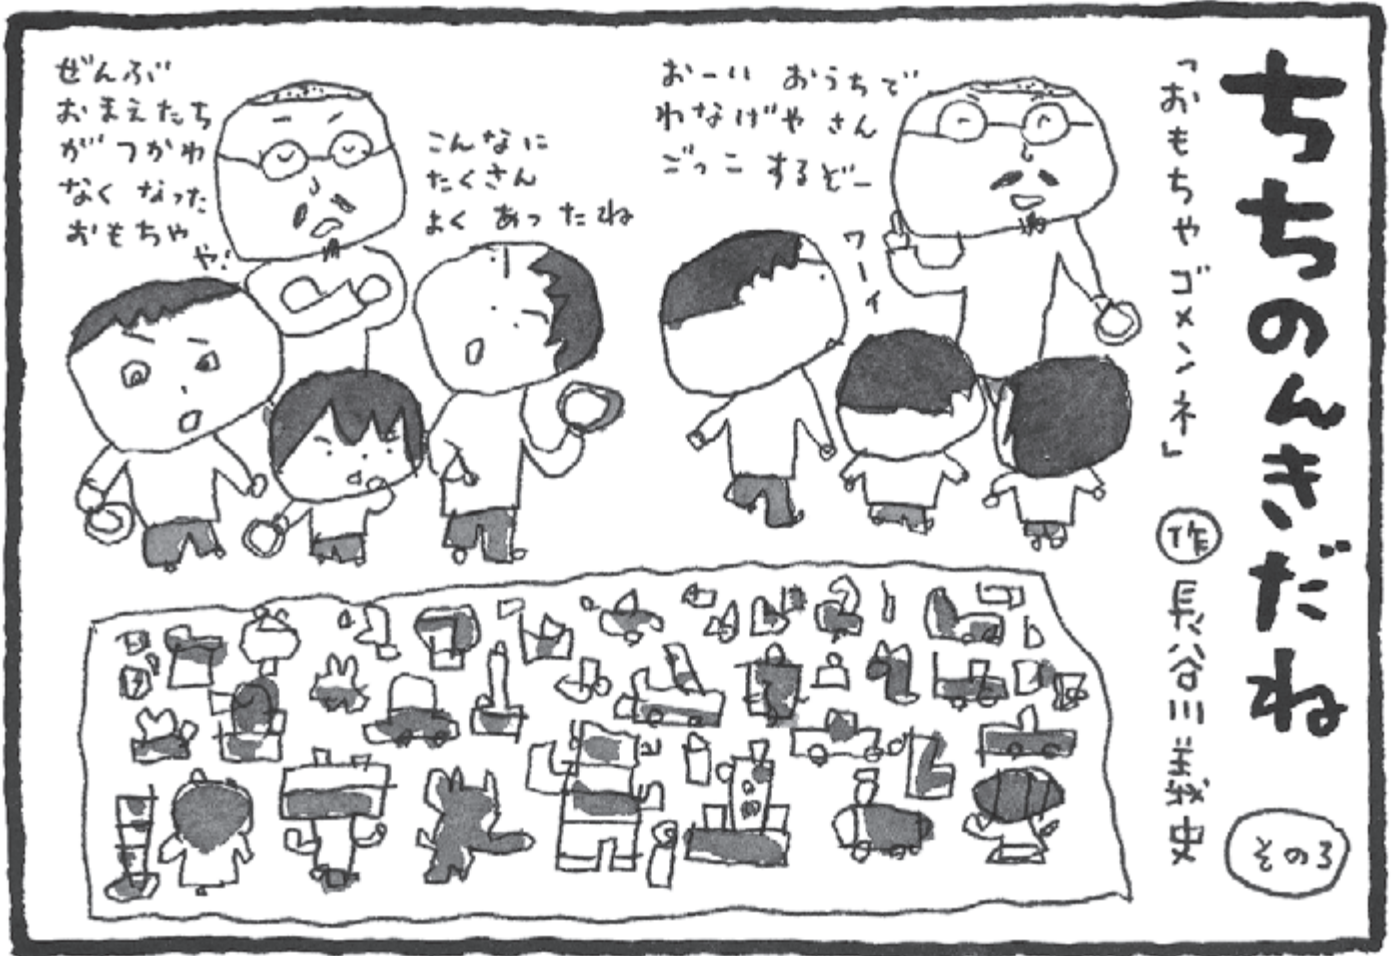 ちちのんきだね
その3
「おもちゃゴメンネ」
作 長谷川義史
おーい おうちで
わなげや さん
ごっこ するぞー
ワーイ
こんなに
たくさん
よく あったね
ぜんぶ
おまえたち
が つかわ
なく なった
おもちゃ
や!